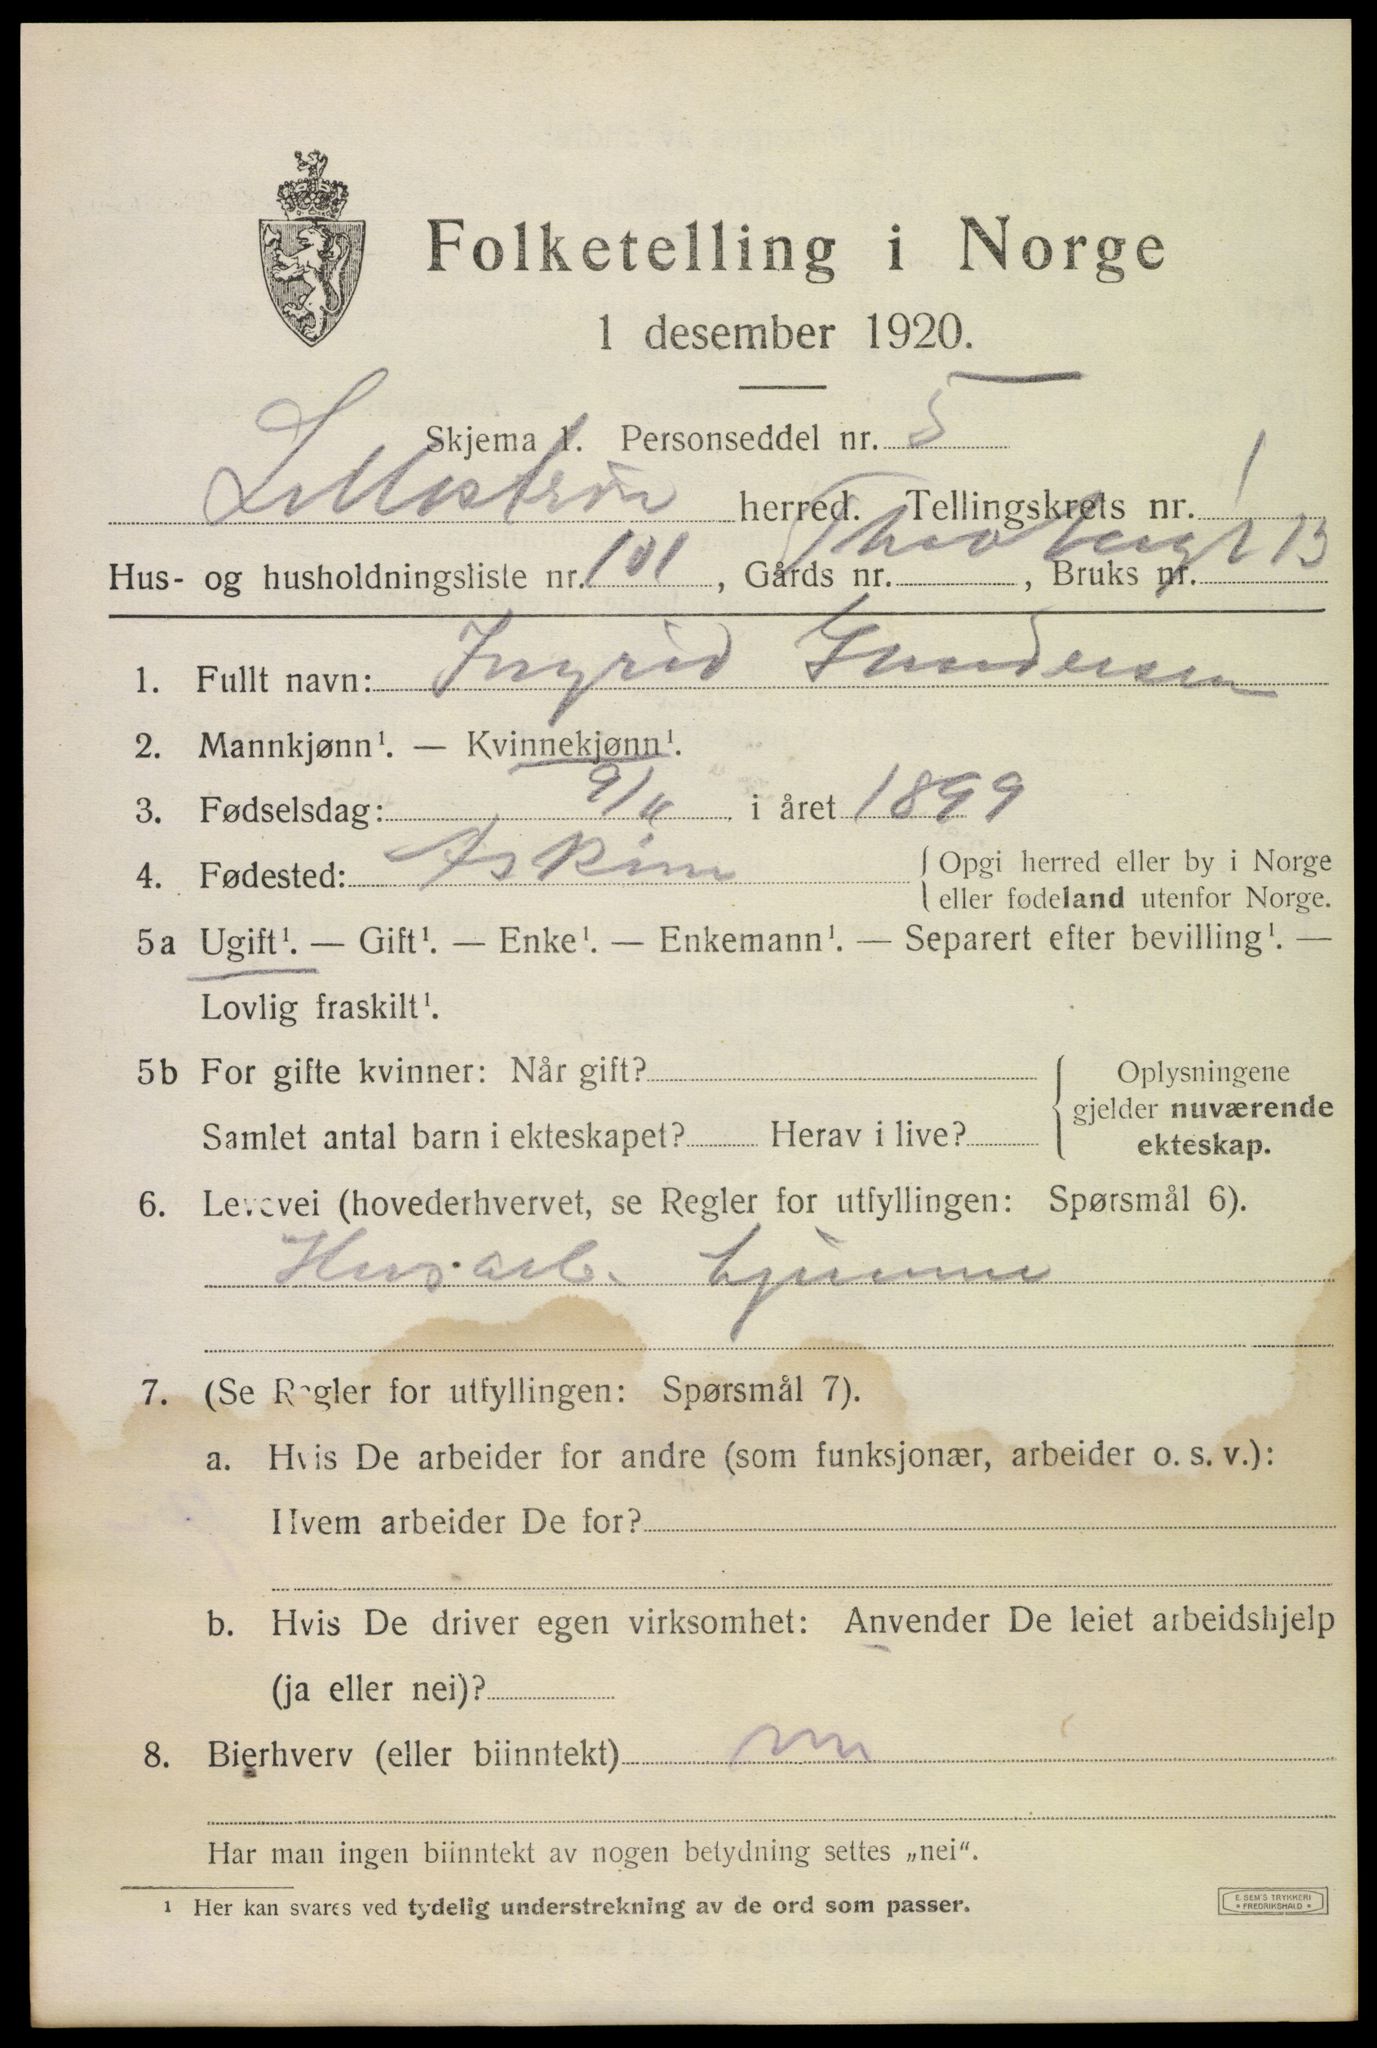 Folketelling i Norge
1 desember 1920.
Skjema 1. Personseddel nr. 5
Lillestrøm herred. Tellingskrets nr. 1
Hus- og husholdningsliste nr. 101, Gårds nr. , Bruks nr. 13
1. Fullt navn: Ingrid Gundersen
2. Mannkjønn¹. — Kvinnekjønn¹.
3. Fødselsdag: 9/11 i året 1899
4. Fødested: Askim { Opgi herred eller by i Norge
eller fødeland utenfor Norge.
5a Ugift¹. — Gift¹. — Enke¹. — Enkemann¹. — Separert efter bevilling¹. —
Lovlig fraskilt¹.
5b For gifte kvinner: Når gift? { Oplysningene
gjelder nuværende
Samlet antal barn i ekteskapet? Herav i live?
ekteskap.
6. Levevei (hovederhvervet, se Regler for utfyllingen: Spørsmål 6).
Husarb. hjemme
7. (Se Regler for utfyllingen: Spørsmål 7).
a. Hvis De arbeider for andre (som funksjonær, arbeider o. s. v.):
Hvem arbeider De for?
b. Hvis De driver egen virksomhet: Anvender De leiet arbeidshjelp
(ja eller nei)?
8. Bierhverv (eller biinntekt) nei
Har man ingen biinntekt av nogen betydning settes „nei“.
¹ Her kan svares ved tydelig understrekning av de ord som passer.
E. SEM'S TRYKKERI
* FREDRIKSHALD *